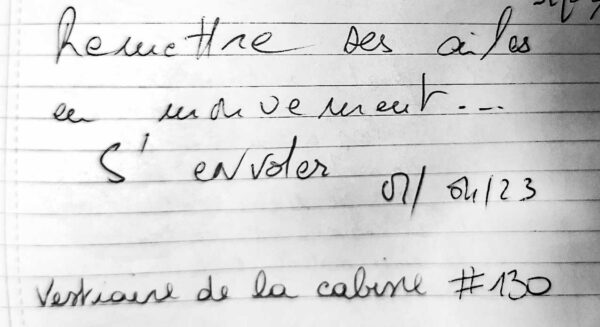 Remettre ses ailes
en mouvement...
S'envoler
07/04/23
Vestiaire de la cabine #130